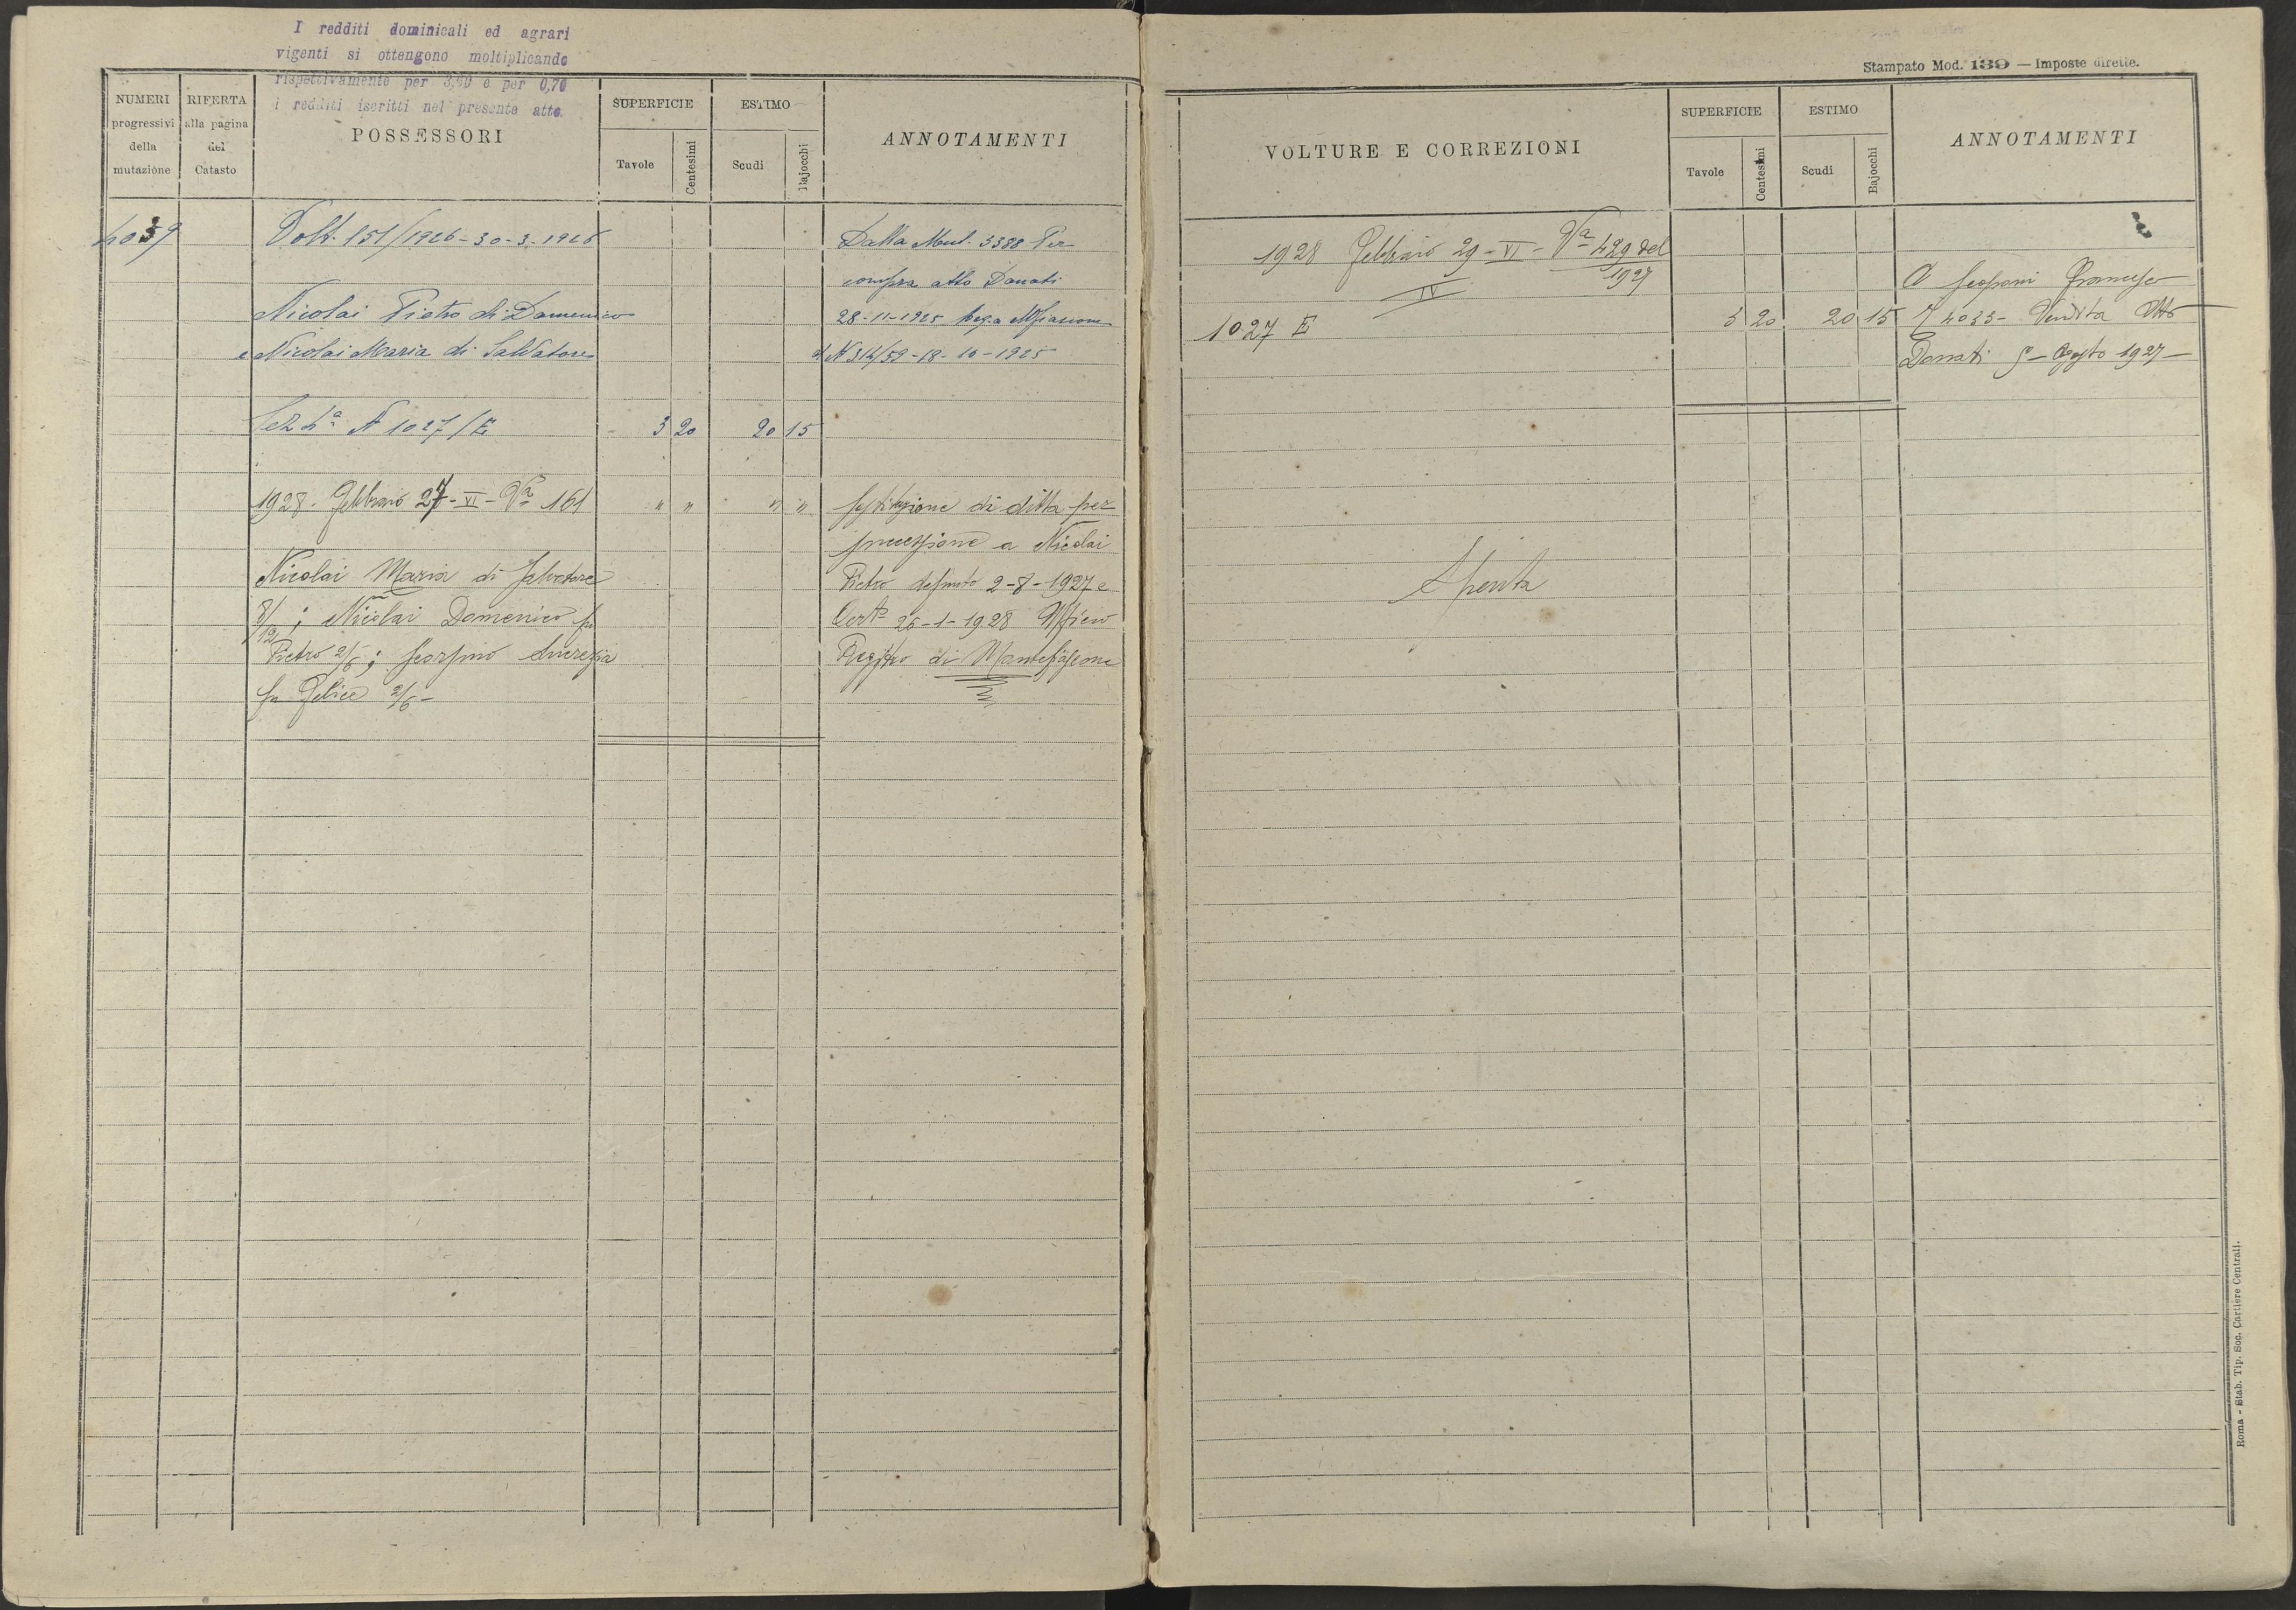 I redditi dominicali ed agrari
vigenti si ottengono moltiplicando
rispettivamente per 3,50 e per 0,70
i redditi iscritti nel presente atto.
NUMERI progressivi della mutazione
RIFERTA alla pagina del Catasto
POSSESSORI
SUPERFICIE
Tavole
Centesimi
ESTIMO
Scudi
Bajocchi
ANNOTAMENTI
4039
Volt. 151/1926-30-3-1926
Dalla Mut. 3388 Per
compra atto Donati
Nicolai Pietro di Domenico
28-11-1925
e Nicolai Maria di Salvatore
N 314/59-18-10-1925
Sez 4ª N 1027/E 3 20 20 15
1928. Febbraio 27-VI-Vª 161 " " " "
Sostituzione di ditta per
successione a Nicolai
Nicolai Maria di Salvatore
Pietro defunto 2-8-1927 e
8/12; Nicolai Domenico fu
Certº 26-1-1928 Ufficio
Pietro 2/6; Scorsino Lucrezia
Registro di Montefiascone
fu Felice 2/6-
Stampato Mod. 139 — Imposte dirette.
VOLTURE E CORREZIONI
SUPERFICIE
Tavole
Centesimi
ESTIMO
Scudi
Bajocchi
ANNOTAMENTI
1928 Febbraio 29-VI-Vª 429 del
1927
IV
A Francesco
1027 E 3 20 20 15
4033- Vendita Atto
Donati Agosto 1927—
Spenta
Roma - Stab. Tip. Soc. Cartiere Centrali.